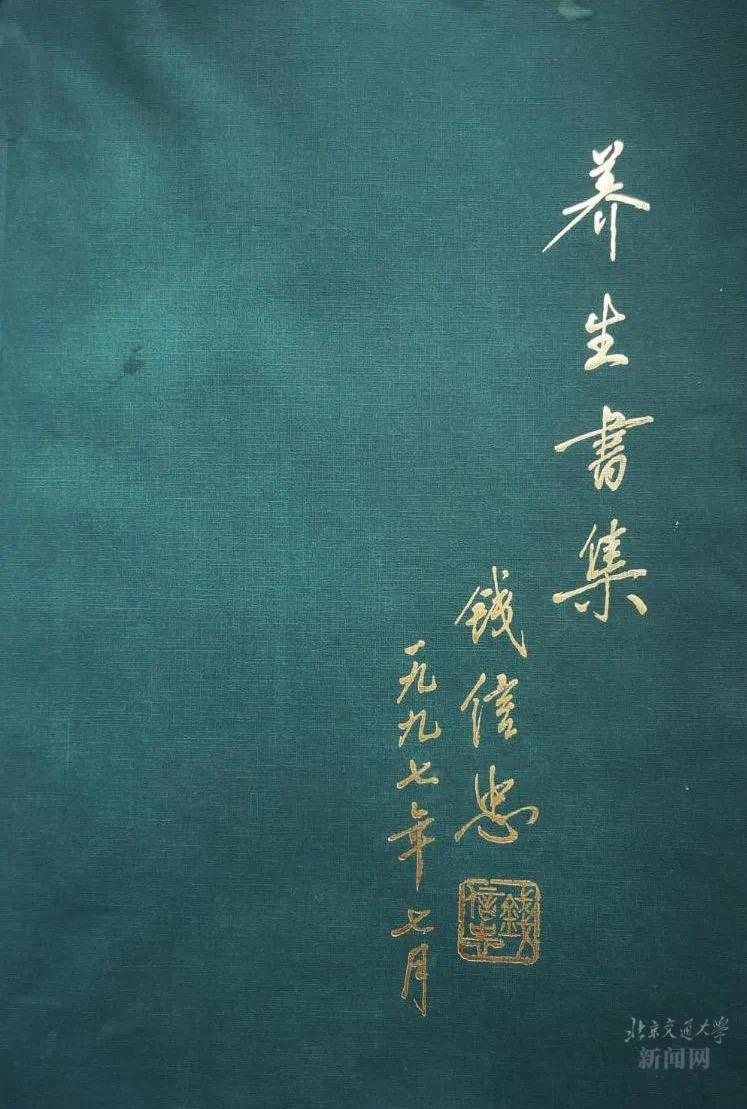 养生書集
钱信忠
一九九七年七月
钱信忠
北京交通大学
新闻网